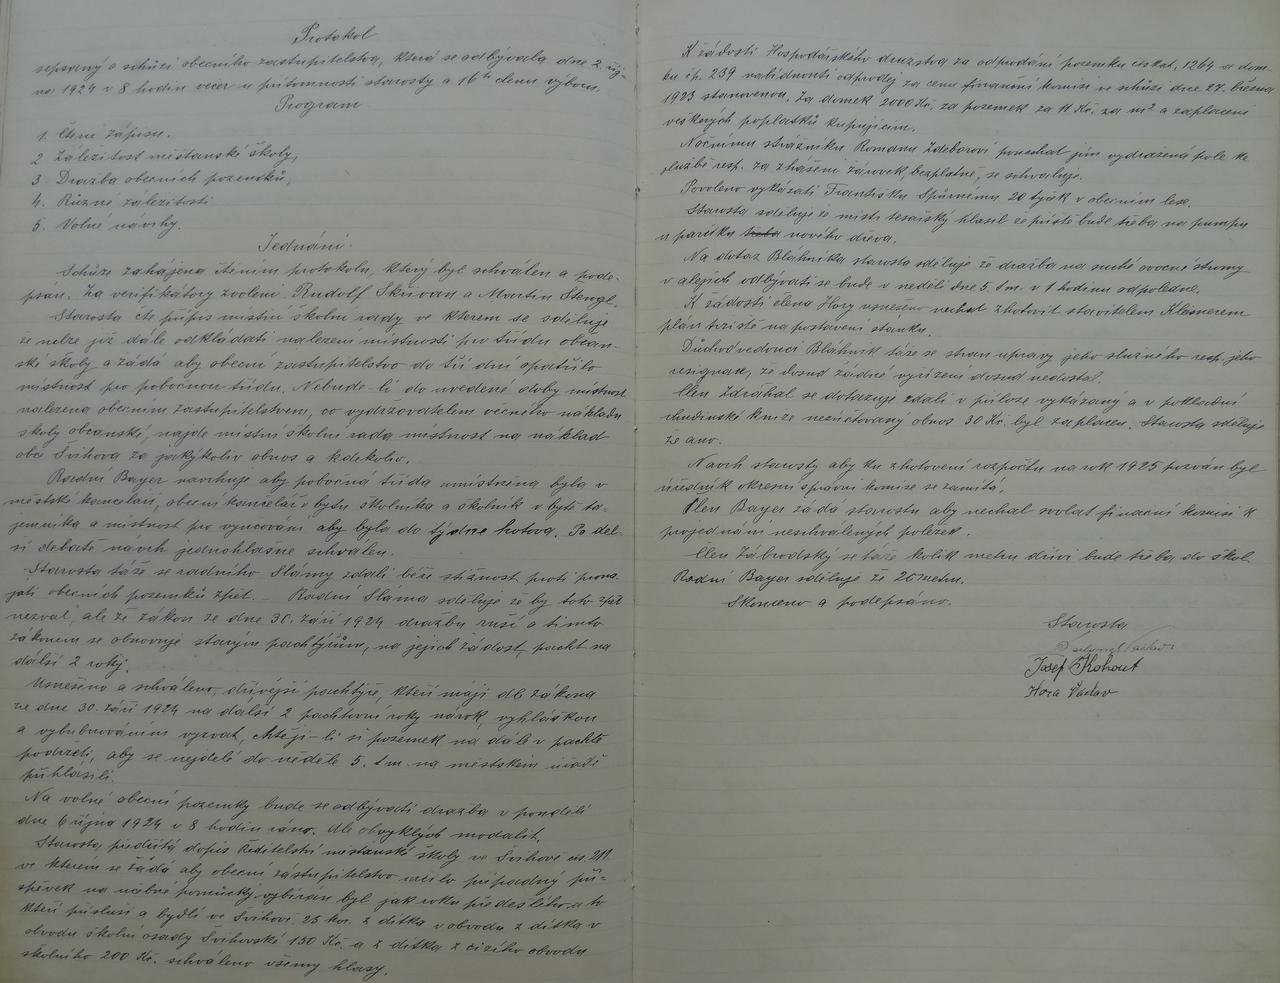 Protokol
sepsaný o schůzi obecního zastupitelstva, která se odbývala dne 2. říj-
na 1924 v 8 hodin večer u přítomnosti starosty a 16ti členů výboru.
Program
1. Čtení zápisu.
2 Záležitost měšťanské školy,
3. Dražba obecních pozemků,
4. Různé záležitosti
5. Volné návrhy.
Jednání:
Schůze zahájena čtením protokolu, který byl schválen a pode-
psán. Za verifikátory zvoleni Rudolf Skřivan a Martin Stengl.
Starosta čte přípis místní školní rady ve kterém se sděluje
že nelze již dále odkládati nalezení místnosti pro třídu občan-
ské školy a žádá aby obecní zastupitelstvo do tří dnů opatřilo
místnost pro pobočnou třídu. Nebude-li do uvedené doby místnost
nalezena obecním zastupitelstvem, co vydržovatelem věcného nákladu
školy občanské, najde místní školní rada místnost na náklad
obce Švihova za jakýkoliv obnos a kdekoliv.
Radní Bayer navrhuje aby pobočná třída umístněna byla v
městské kanceláři, obecní kancelář v bytu školníka a školník v bytě ta-
jemníka a místnost pro vyučování aby byla do týdne hotova. Po del-
ší debatě návrh jednohlasně schválen.
Starosta táže se radního Slámy zdali béře stížnost proti prona-
jatí obecních pozemků zpět. – Radní Sláma sděluje že by toto zpět
nezval, ale že zákon ze dne 30. září 1924 dražbu ruší a tímto
zákonem se obnovuje starým pachtýřům, na jejich žádost, pacht na
další 2 roky.
Usnešeno a schváleno, dřívější pachtýře, kteří mají dle zákona
ze dne 30. září 1924 na další 2 pachtovní roky nárok, vyhláškou
a vybubnováním vyzvat, chtějí-li si pozemek na dále v pachtě
podržeti, aby se nejdéle do neděle 5. t.m. na městském úřadě
přihlásili.
Na volné obecní pozemky bude se odbývati dražba v pondělí
dne 6 října 1924 v 8 hodin ráno. Dle obvyklých modalit.
Starosta předčítá dopis Ředitelství měšťanské školy ve Švihově čís. 211.
ve kterém se žádá aby obecní zastupitelstvo určilo případný pří-
spěvek na učebné pomůcky vybírán byl jak roku předešlého, a to
kteří přísluší a bydlí ve Švihově 25 kor. z dítka v obvodu z dítka v
obvodu školní osady Švihovské 150 Kč. a z dítka z cizího obvodu
školního 200 Kč. schváleno všemy hlasy.
K žádosti Hospodářského družstva za odprodání pozemku čís. kat. 1264 a dom-
ku čp. 239 nabídnouti odprodej za cenu finanční komisí ve schůzi dne 27. března
1923 stanovenou. Za domek 2000 Kč. za pozemek za 11 Kč. za m² a zaplacení
veškerých poplatků kupujícím.
Nočnímu strážníku Romanu Zdeborovi ponechat jím vydražená pole ke
službě resp. za zhášení žárovek, bezplatně, se schvaluje.
Povoleno vykázati Františku Spůrnému 20 tyček v obecním lese.
Starosta sděluje že mistr tesařský hlásil že příště bude třeba na pumpu
u parčíku třeba nového dřeva.
Na dotaz Bláhníka starosta sděluje že dražba na suché ovocné stromy
v alejích odbývati se bude v neděli dne 5. t.m. v 1 hodinu odpoledne.
K žádosti člena Hory usneseno nechat zhotovit stavitelem Kleisnerem
plán tržiště na postavení stánku.
Důchod vedoucí Bláhník táže se stran úpravy jeho služného resp. jeho
resignace, že dosud žádné vyřízení dosud nedostal.
Člen Zdráhal se dotazuje zdali v příloze vykázaný a v pokladní
chudinské knize nezúčtovaný obnos 30 Kč. byl zaplacen. Starosta sděluje
že ano.
Návrh starosty aby ku zhotovení rozpočtu na rok 1925 pozván byl
úředník okresní správní komise se zamítá.
Člen Bayer žádá starostu aby nechal svolat finanční komisi k
projednání neschválených položek.
Člen Zábrodský se táže kolik metrů dříví bude třeba do škol.
Radní Bayer sděluje že 20 metrů.
Skončeno a podepsáno.
Starosta
Josef Kohout
Hora Václav